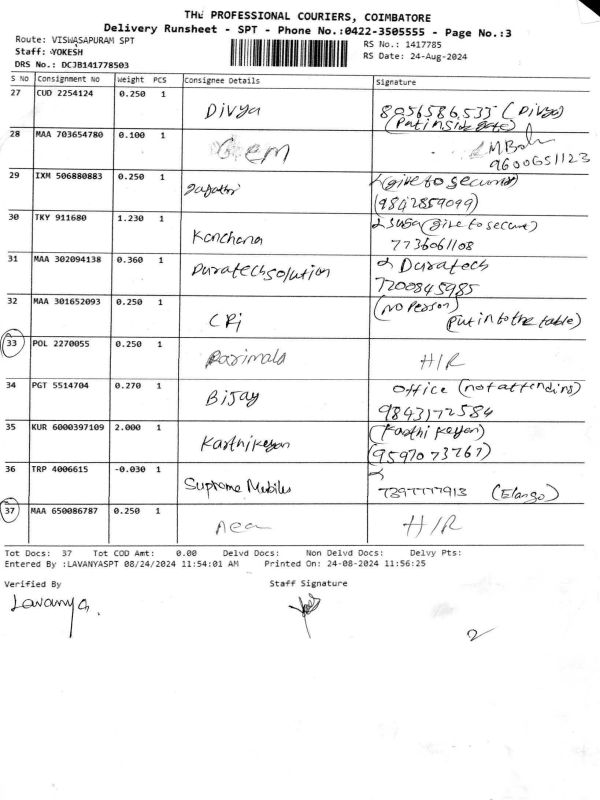 THE PROFESSIONAL COURIERS, COIMBATORE
Delivery Runsheet - SPT - Phone No.:0422-3505555 - Page No.:3
Route: VISWASAPURAM SPT
RS No.: 1417785
Staff: YOKESH
RS Date: 24-Aug-2024
DRS No.: DCJB141778503
S No Consignment No Weight PCS Consignee Details Signature
27 CUD 2254124 0.250 1 Divya 8056586533 (Divya)
(Put inside gate)
28 MAA 703654780 0.100 1 GEM
9600651123
29 IXM 506880883 0.250 1 (give to security)
(9842859099)
30 TKY 911680 1.230 1 Kanchana (give to secure)
7736061108
31 MAA 302094138 0.360 1 Duratechsolution Duratech
7200845985
32 MAA 301652093 0.250 1 CRi (no Person)
(put in to the table)
33 POL 2270055 0.250 1 Parimala H/R
34 PGT 5514704 0.270 1 Bijay Office (not attending)
9843172584
35 KUR 6000397109 2.000 1 Karthikeyan (Karthi keyan)
(9597073767)
36 TRP 4006615 -0.030 1 Supreme Mobiles
7397777913 (Elango)
37 MAA 650086787 0.250 1 H/R
Tot Docs: 37 Tot COD Amt: 0.00 Delvd Docs: Non Delvd Docs: Delvy Pts:
Entered By :LAVANYASPT 08/24/2024 11:54:01 AM Printed On: 24-08-2024 11:56:25
Verified By Staff Signature
Lavanya.
2